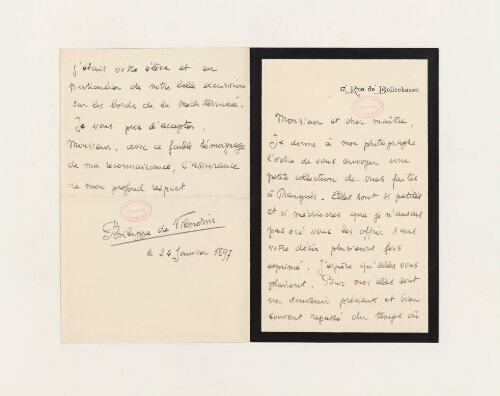 17, Rue de Bellechasse.
Monsieur et cher maître,
Je donne à mon photographe
l'ordre de vous envoyer une
petite collection de vues faites
à Banyuls. Elles sont si petites
et si médiocres que je n'aurais
pas osé vous les offrir sans
votre désir plusieurs fois
exprimé. J'espère qu'elles vous
plairont. Pour moi elles sont
un souvenir précieux et bien
souvent repassé du temps où
j'étais votre élève et en
particulier de notre belle excursion
sur les bords de la méditerranée.
Je vous prie d'accepter,
Monsieur, avec ce faible témoignage
de ma reconnaissance, l'assurance
de mon profond respect
Philippe de Vilmorin
le 24 Janvier 1897